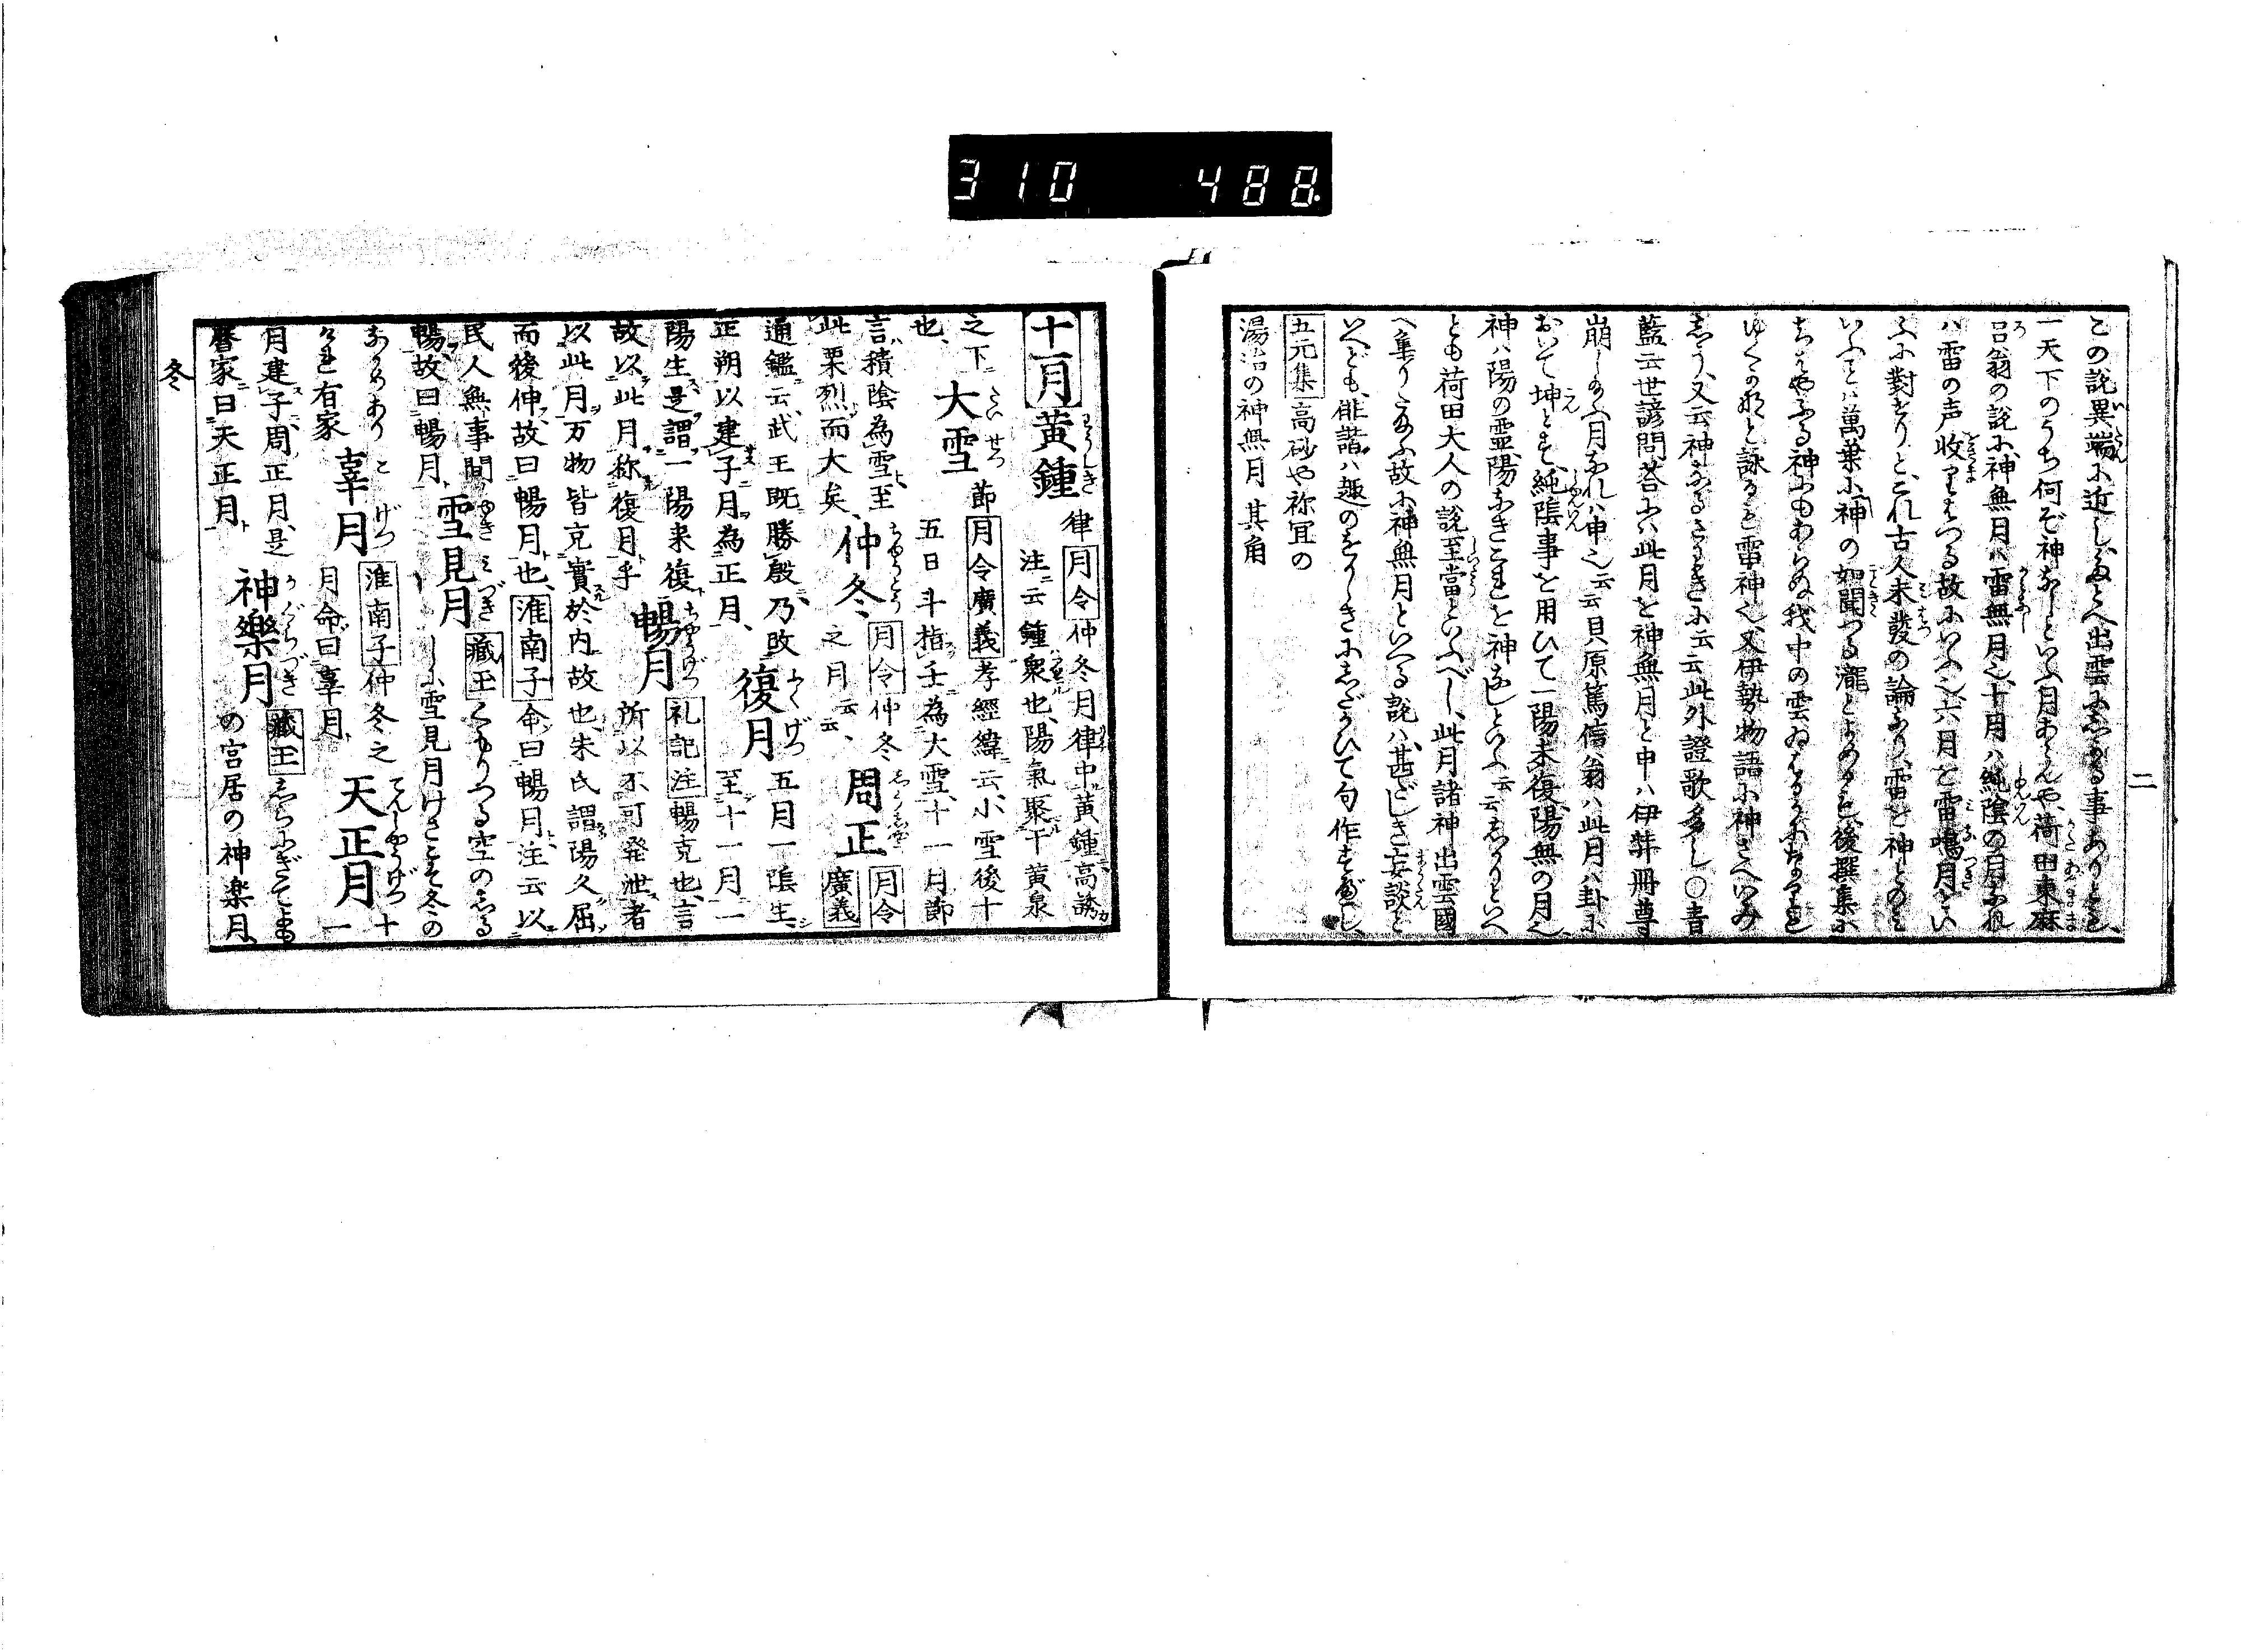 310 488
二
この説異端に近したとへ出雲にしかる事ありとも
一天下のうち何ぞ神なしといふ月あらんや、荷田東麻
呂翁の説に、神無月ハ雷無月也、十月ハ純陰の月なれ
ハ雷の声収りはつる故にいふ也、六月を雷鳴月とい
ふに對せりと、これ古人未發の論なり、雷を神とのミ
いふことハ萬葉に神の如聞つる瀧とよめるも、後撰集に
ちはやふる神にもあらぬ我中の雲ゐはるかに
ゆくかなと詠るも雷神也、又伊勢物語に神さへいみ
しう、又云神なるさわきに云云此外證歌多し○青
藍云世諺問答にハ此月を神無月と申ハ伊弉冊尊
崩しのふ月なれハ申也云云貝原篤信翁ハ此月ハ卦に
おいて坤とす、純陰事を用ひて一陽未復、陽無の月也
神ハ陽の霊、陽なきこれを神なしといふ云云しかりといへ
とも荷田大人の説至當といふべし、此月諸神出雲國
へ集りたまふ故に神無月といへる説ハ、甚どしき妄談と
いへども、俳諧ハ趣のをかしきにしたがひて句作すべし、
五元集 高砂や祢冝の
湯治の神無月 其角
十一月 黄鐘 律 月令 仲冬月律中黄鐘高誘
注云鐘衆也、陽氣聚于黄泉
之下 大雪 節 月令廣義 孝經緯云小雪後十
五日斗指壬為大雪、十一月節
也、
言積陰為雪至 仲冬 月令 仲冬 周正 月令
此栗烈而大矣、 之月云云、 廣義
通鑑云武王既勝殷乃改 復月 五月一陰生、
正朔以建子月為正月、 至十一月一
陽生是謂一陽来復 暢月 礼記注 暢充也、言
故以此月称復月乎 所以不可発泄者
以此月万物皆充實於内故也、朱氏謂陽久屈
而後伸、故曰暢月也、 淮南子 命曰暢月注云以
民人無事間 雪見月 藏玉 くもりつる空のしる
暢故曰暢月 しに雪見月けさこそ冬の
なかめありと 辜月 淮南子 仲冬之 天正月 十一
けれ有家 月命曰辜月
月建子周正月、是 神樂月 藏玉 しらにぎてよも
暦家曰天正月 の宮居の神楽月、
冬